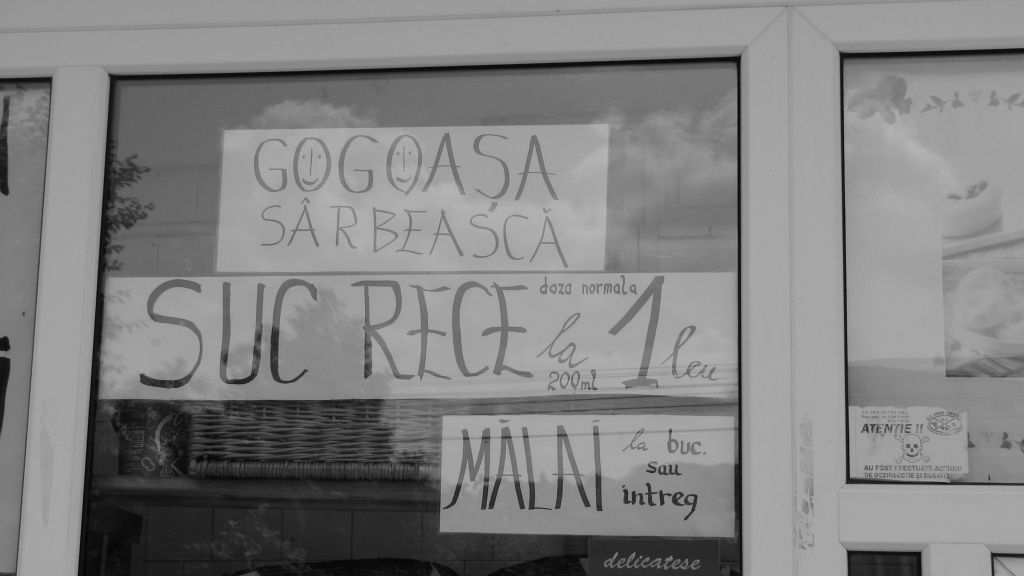 GOGOAȘA
SÂRBEASCĂ
SUC RECE la 1 leu
doza normala
200ml
MĂLAI la buc.
sau
intreg
delicatese
ATENȚIE !!
AU FOST EFECTUATE ACȚIUNI
DE DEZINSECȚIE ȘI DERATIZ